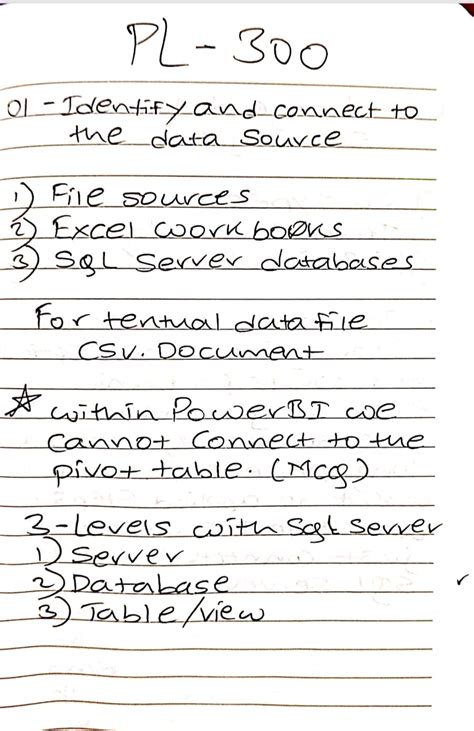 PL-300
01 - Identify and connect to
the data source
1) File sources
2) Excel workbooks
3) SQL Server databases
For tentual data file
CSV. Document
☆ within PowerBI we
cannot connect to the
pivot table. (Mcq)
3-Levels with Sqt Server
1) Server
2) Database
3) Table/view